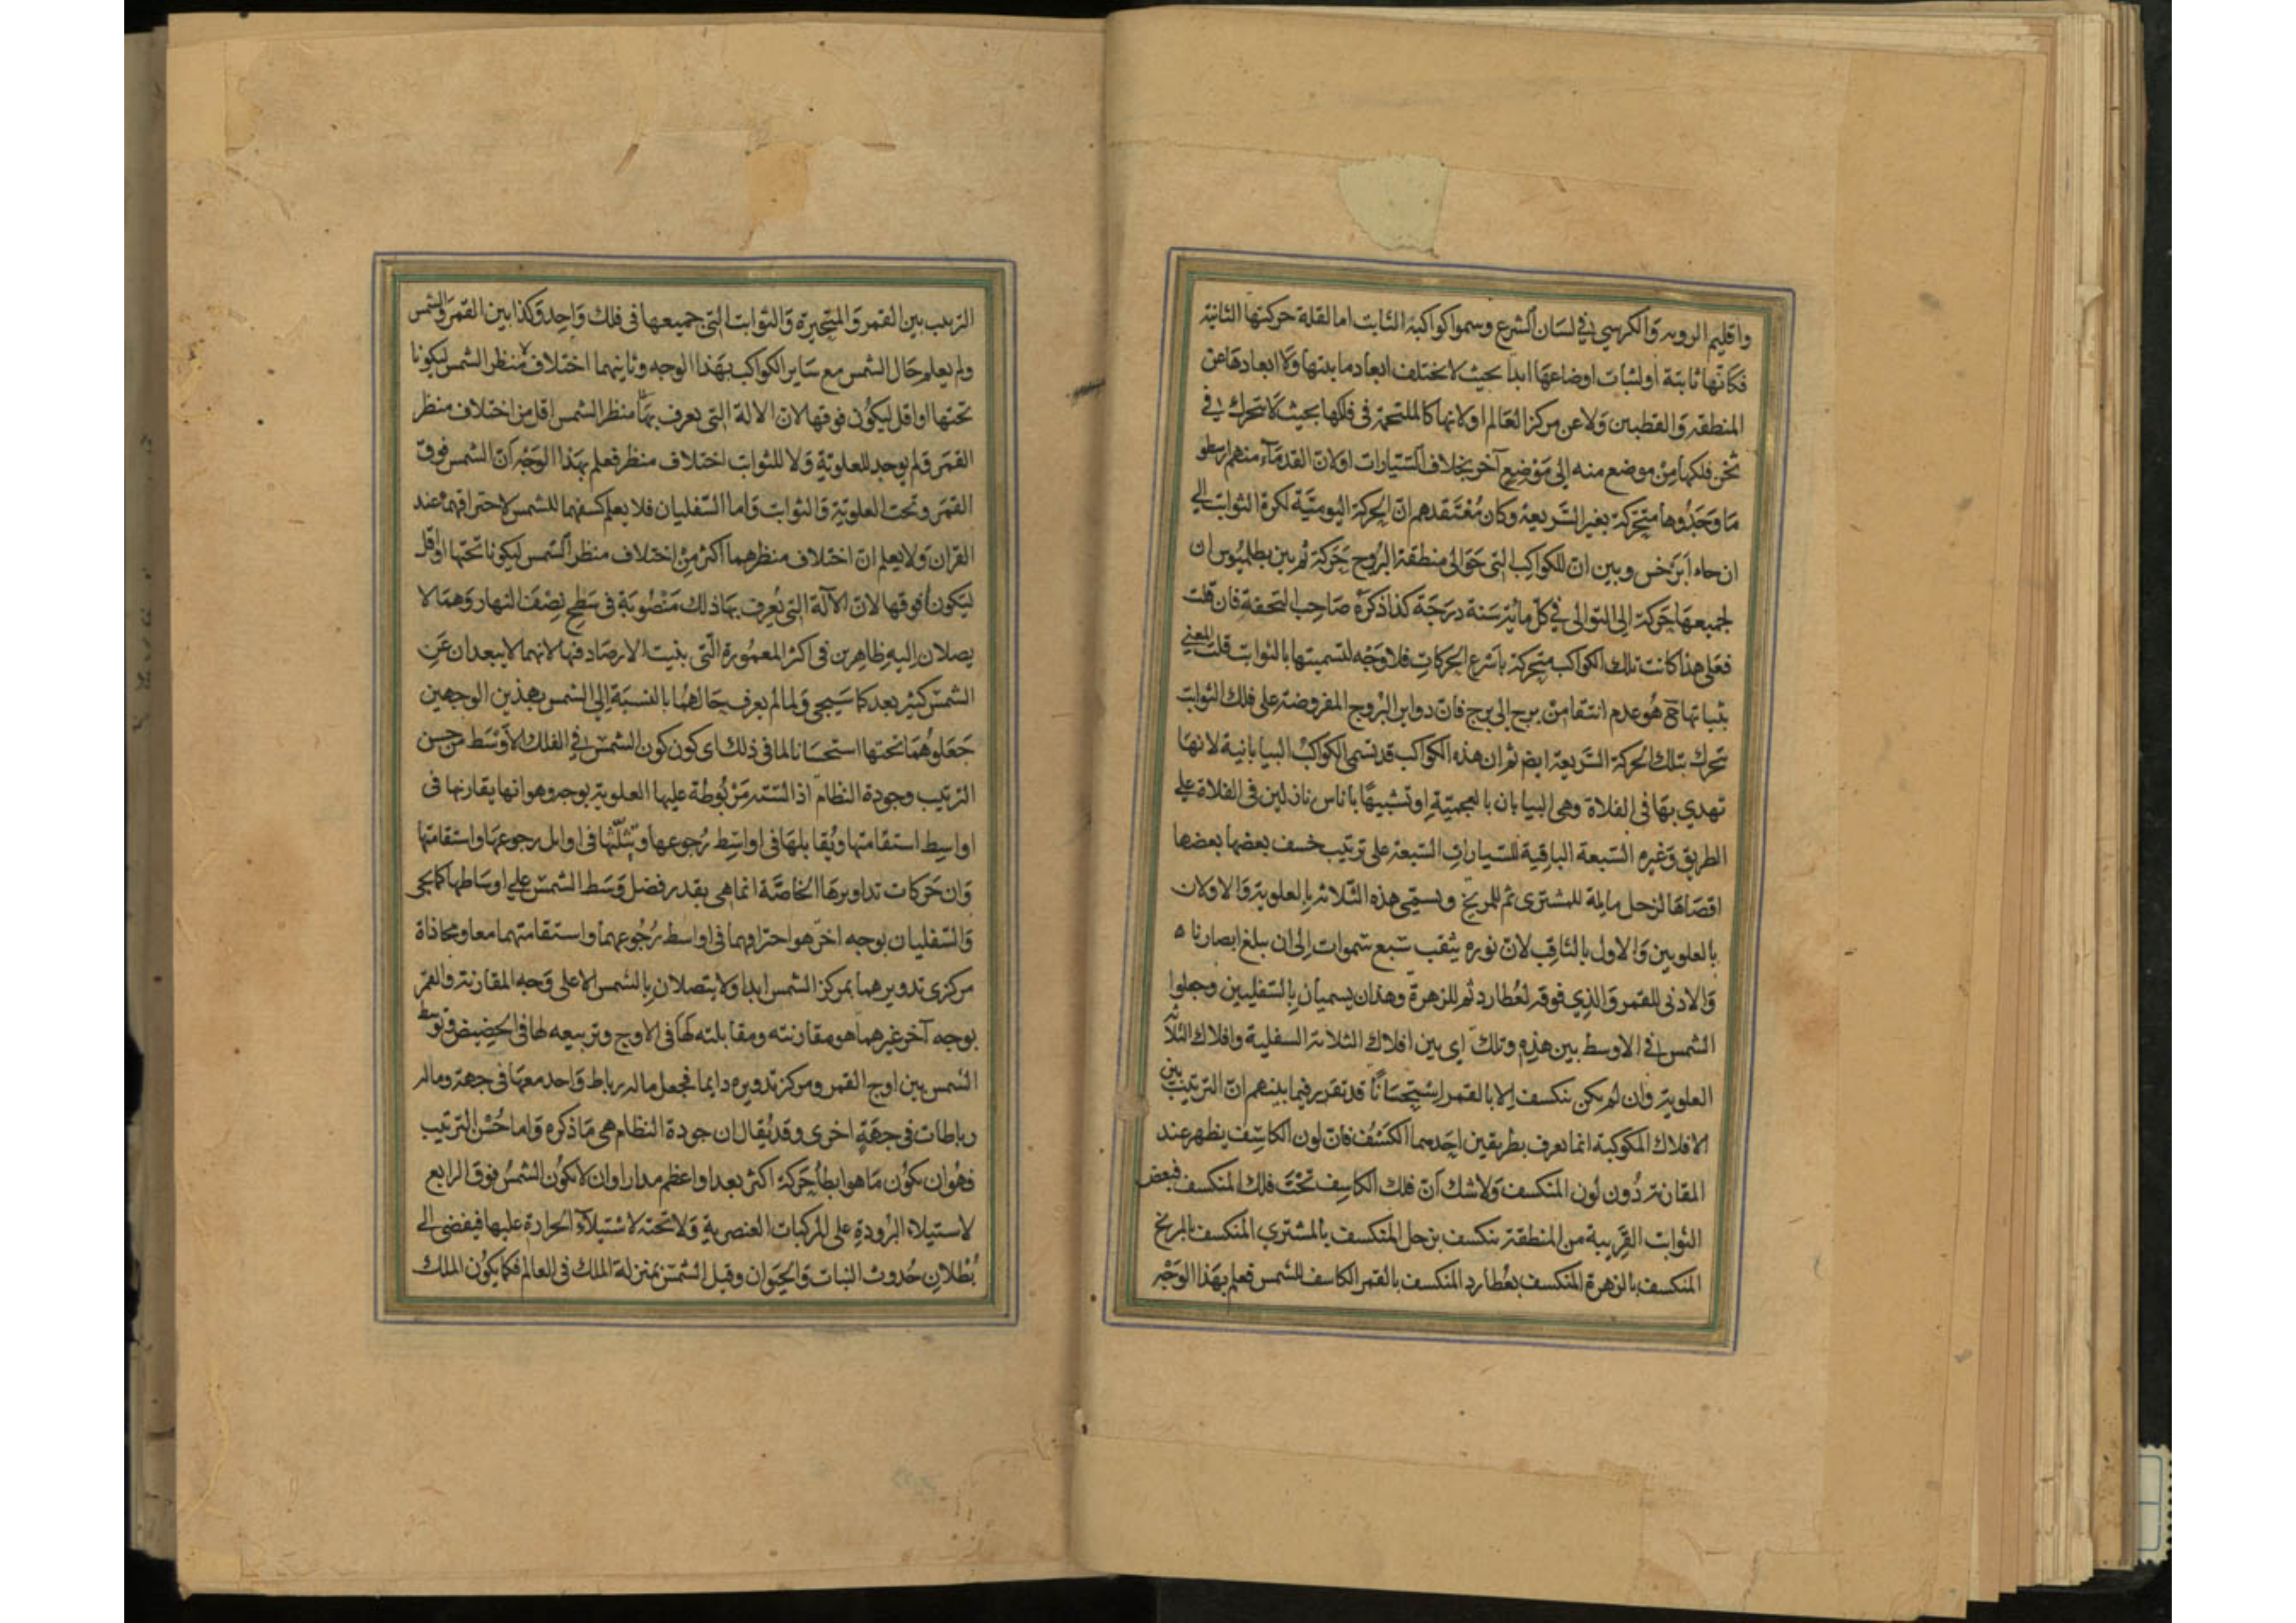 واقليم الرويه والكرسي في لسان الشرع وسموا كواكبه الثابت اما لقلة حركتها الثانية
فكانها ثابتة او لثبات اوضاعها ابدا بحيث لا تختلف ابعاد ما بينها ولا ابعادها عن
المنطقة والقطبين ولا عن مركز العالم او لانها كالملتحمة في فلكها بحيث لا تتحرك في
ثخن فلكها من موضع منه إلى موضع آخر بخلاف السيارات او لان القدماء منهم ارسطو
ما وجدوها متحركة بغير السريعة وكان معتقدهم ان الحركة اليومية لكرة الثوابت الي
ان جاء ابرخس وبين ان للكواكب التي حوالي منطقة البروج حركة ثم بين بطلميوس ان
لجميعها حركة إلى التوالي في كل مائة سنة درجة كذا ذكره صاحب التحفة فان قلت
فعلى هذا كانت تلك الكواكب متحركة باسرع الحركات فلا وجه لتسميتها بالثوابت قلت المعني
بثباتها هو عدم انتقا من برج إلى برج فان دواير البروج المفروضة على فلك الثوابت
تتحرك بتلك الحركة السريعة ايض ثم ان هذه الكواكب قد تسمى الكواكب البيابانية لانها
تهدي بها في الفلاة وهي البيابان بالعجمية او تشبيها باناس نازلين في الفلاة علي
الطريق وغيره السبعة الباقية للسيارات السبعة على ترتيب خسف بعضها بعضها
اقصاها لزحل ما يلمة للمشترى ثم للمريخ ويسمى هذه الثلاثة بالعلوية والاولان
بالعلويين والاول بالثاقب لان نوره يثقب سبع سموات إلى ان يبلغ ابصارنا ه
والادنى للقمر والذي فوقه لعطارد ثم للزهرة وهذان يسميان بالسفليين وجعلوا
الشمس في الاوسط بين هذه وتلك اي بين افلاك الثلاثة السفلية وافلاك الثلاثة
العلوية وان لم يكن ينكسف إلا بالقمر استحسانا قد تقرر فيما بينهم ان الترتيب بين
الافلاك المكوكبة انما يعرف بطريقين احدهما الكسف فان لون الكاسف يظهر عند
المقانة دون لون المنكسف ولا شك ان فلك الكاسف تحت فلك المنكسف فبعض
الثوابت القريبة من المنطقة ينكسف بزحل المنكسف بالمشتري المنكسف بالمريخ
المنكسف بالزهرة المنكسف بعطارد المنكسف بالقمر الكاسف للشمس فعلم بهذا الوجه
الترتيب بين القمر والمتحيرة والثوابت التي جميعها في فلك واحد وكذا بين القمر والشمس
ولم يعلم حال الشمس مع ساير الكواكب بهذا الوجه وثانيهما اختلاف منظر الشمس ليكونا
تحتها او اقل ليكون فوقها لان الالة التي يعرف بها منظر الشمس اقل من اختلاف منظر
القمر ولم يوجد للعلوية ولا للثوابت اختلاف منظر فعلم بهذا الوجه أن الشمس فوق
القمر وتحت العلوية والثوابت واما السفليان فلا يعلم كسفهما للشمس لاحتراقهما عند
القران ولا يعلم ان اختلاف منظرهما اكثر من اختلاف منظر الشمس ليكونا تحتها او اقل
ليكونا فوقها لان الآلة التي يعرف بها ذلك منصوبة في سطح نصف النهار وهما لا
يصلان إليه ظاهرين في اكثر المعمورة التي بنيت الارصاد فيها لانهما لا يبعدان عن
الشمس كثير بعد كما سيجي ولما لم يعرف حالهما بالنسبة إلى الشمس بهذين الوجهين
جعلوهما تحتها استحسانا لما في ذلك اى كون كون الشمس في الفلك الاوسط من حسن
الترتيب وجودة النظام اذ الستة مربوطة عليها العلوية بوجه وهو انها يقارنها في
اواسط استقامتها ويقابلها في اواسط رجوعها ويثلثها في اوايل رجوعها واستقامتها
وان حركات تداويرها الخاصة انما هي بقدر فضل وسط الشمس على اوساطها كما يجى
والسفليان بوجه اخر هو احتراقهما في اواسط رجوعهما واستقامتهما معا ومحاذاة
مركزى تدويرهما بمركز الشمس ابدا ولا يتصلان بالشمس الا على وجه المقارنة والقمر
بوجه آخر غيرهما هو مقارنته ومقابلته لها في الاوج وتربيعه لها في الحضيض وتوسط
الشمس بين اوج القمر ومركز تدويره دايما فجعل ماله رباط واحد معها في جهة وماله
رباطات في جهة اخرى وقد يقال ان جودة النظام هي ما ذكره واما حسن الترتيب
فهو ان يكون ما هو ابطأ حركة اكثر بعدا واعظم مدارا وان لا تكون الشمس فوق الرابع
لاستيلاء البرودة على المركبات العنصرية ولا تحته لاستيلاء الحرارة عليها فيفضى الى
بطلان حدوث النبات والحيوان وقيل الشمس بمنزلة الملك في العالم فكما يكون الملك